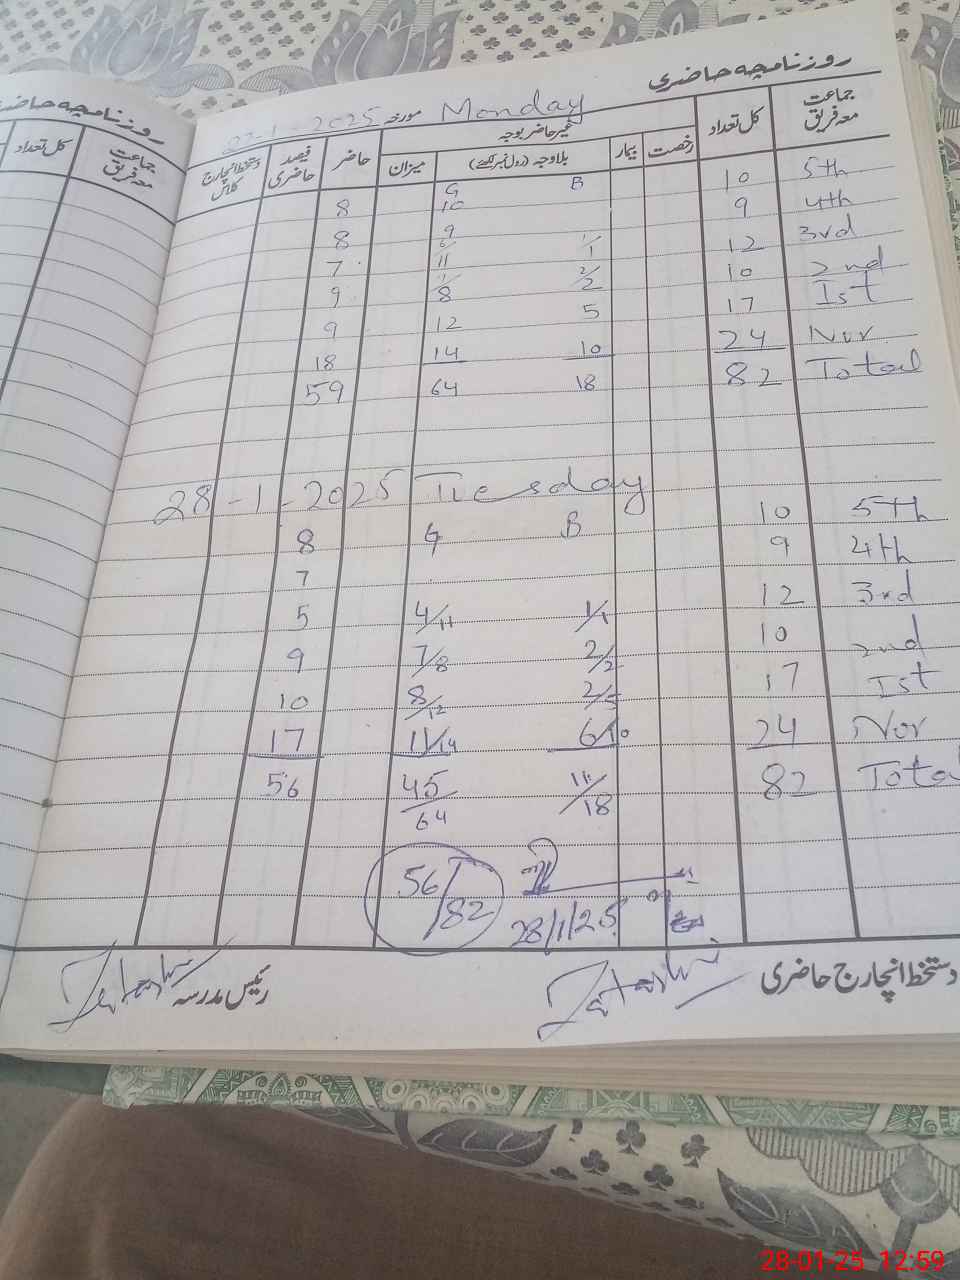 روزنامچہ حاضری
روزنامچہ حاضری
27-1-2025 مورخہ Monday
جماعت معہ فریق
کل تعداد
جماعت معہ فریق
کل تعداد
رخصت
بیمار
غیر حاضر بوجہ
بلاوجہ (رول نمبر لکھئے)
میزان
حاضر
فیصد حاضری
دستخط انچارج کلاس
5th 10 B G
4th 9 10 8
3rd 12 9 8
2nd 10 11 7
Ist 17 2/2 8 9
Nur 24 5 12 9
Total 82 10 14 18
18 64 59
28-1-2025 Tuesday
5th 10 B G 8
4th 9 7
3rd 12 1/1 4/11 5
2nd 10 2/2 7/8 9
Ist 17 2/5 8/12 10
Nur 24 6/10 11/14 17
Total 82 11/18 45/64 56
56/82
28/1/25
دستخط انچارج حاضری
رئیس مدرسہ
28-01-25 12:59